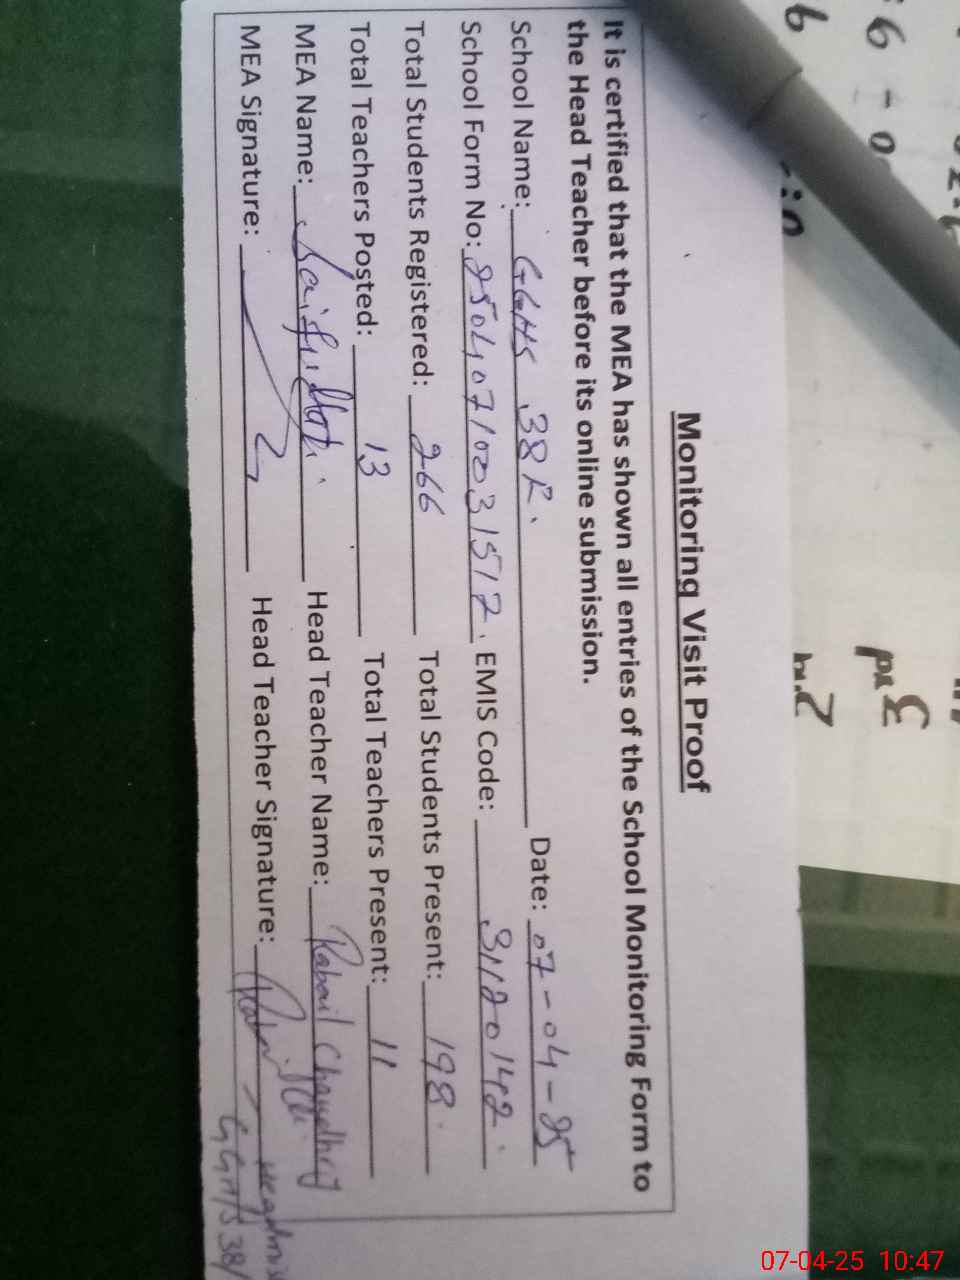 Monitoring Visit Proof
It is certified that the MEA has shown all entries of the School Monitoring Form to
the Head Teacher before its online submission.
School Name: GGHS 38 R. Date: 07-04-25
School Form No: 25040710031512. EMIS Code: 31120142.
Total Students Registered: 266 Total Students Present: 198.
Total Teachers Posted: 13 Total Teachers Present: 11
MEA Name: Head Teacher Name: Rabail Chaudhry
MEA Signature: Head Teacher Signature:
GGHS 38/
07-04-25 10:47